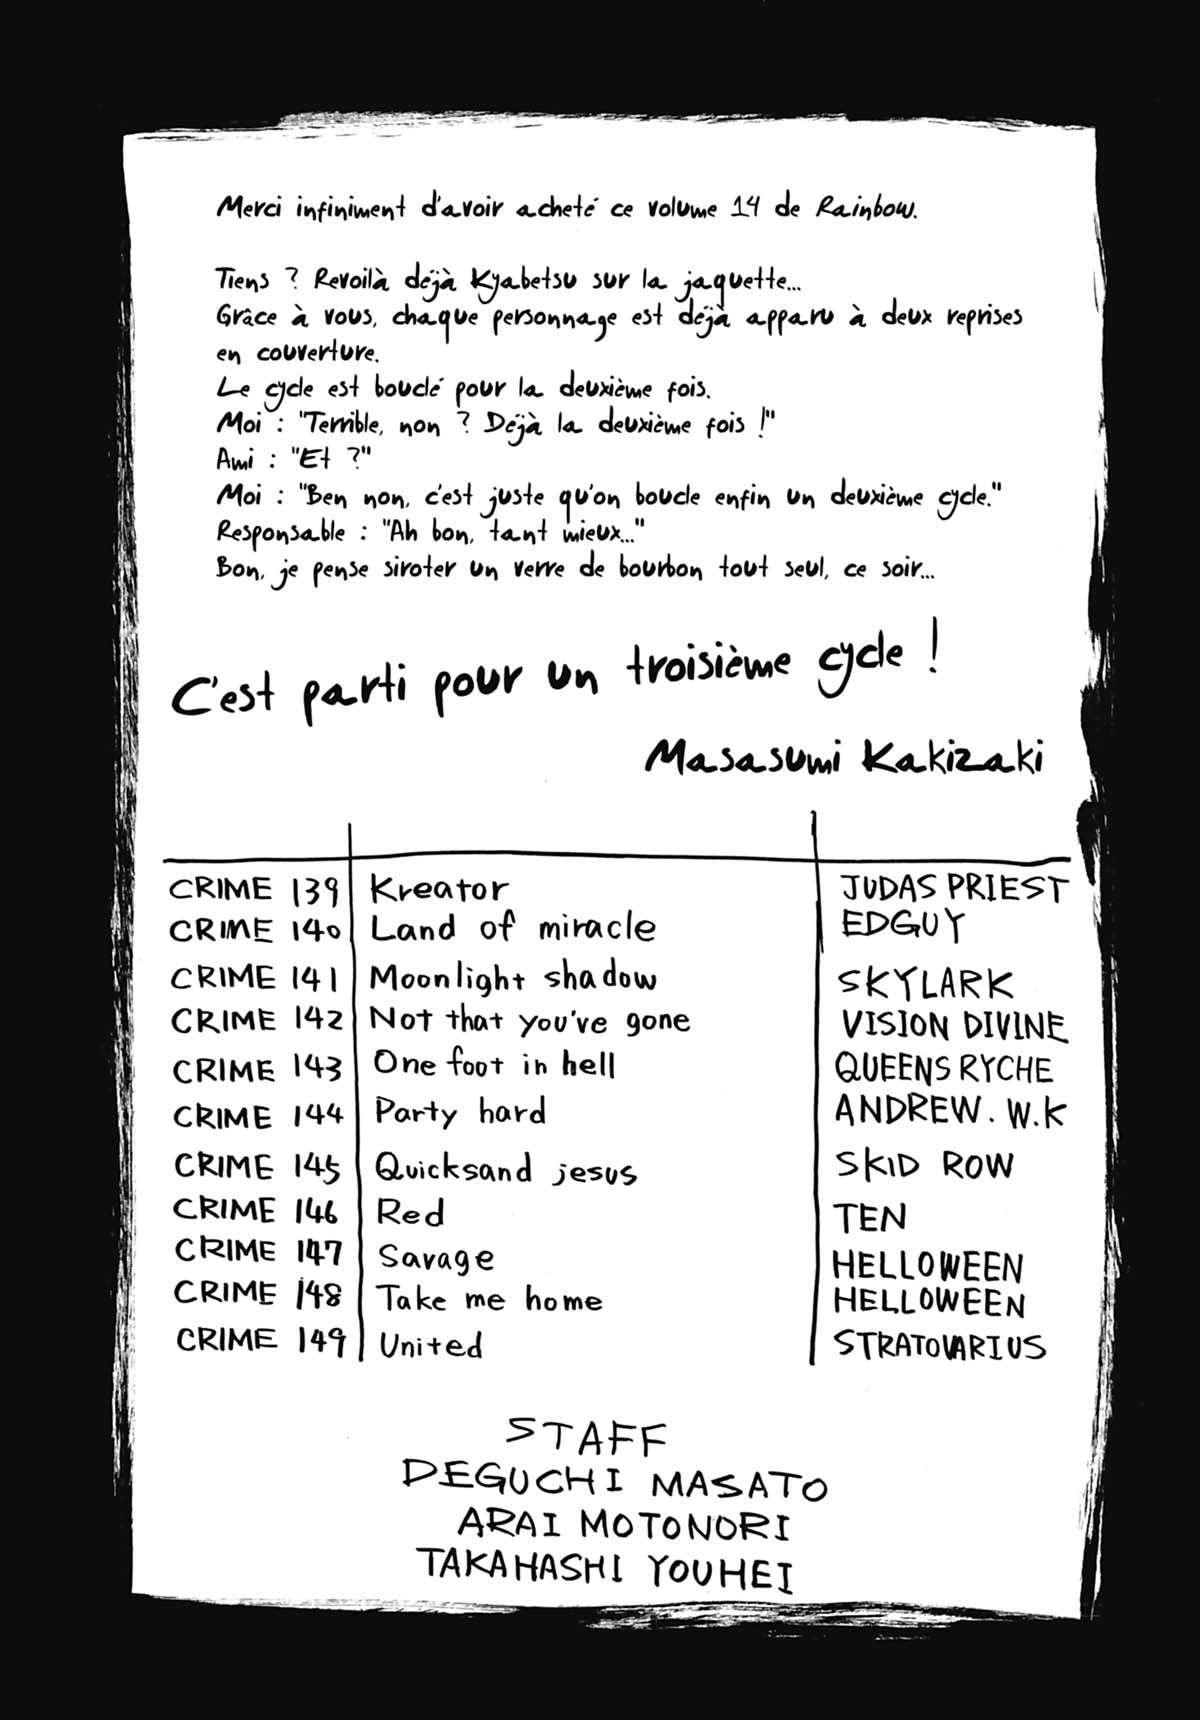 Merci infiniment d'avoir acheté ce volume 14 de Rainbow.
Tiens ? Revoilà déjà Kyabetsu sur la jaquette...
Grâce à vous, chaque personnage est déjà apparu à deux reprises
en couverture.
Le cycle est bouclé pour la deuxième fois.
Moi : "Terrible, non ? Déjà la deuxième fois !"
Ami : "Et ?"
Moi : "Ben non, c'est juste qu'on boucle enfin un deuxième cycle."
Responsable : "Ah bon, tant mieux..."
Bon, je pense siroter un verre de bourbon tout seul, ce soir...
C'est parti pour un troisième cycle !
Masasumi Kakizaki
CRIME 139 Kreator JUDAS PRIEST
CRIME 140 Land of miracle EDGUY
CRIME 141 Moonlight shadow SKYLARK
CRIME 142 Not that you've gone VISION DIVINE
CRIME 143 One foot in hell QUEENS RYCHE
CRIME 144 Party hard ANDREW. W.K
CRIME 145 Quicksand jesus SKID ROW
CRIME 146 Red TEN
CRIME 147 Savage HELLOWEEN
CRIME 148 Take me home HELLOWEEN
CRIME 149 United STRATOVARIUS
STAFF
DEGUCHI MASATO
ARAI MOTONORI
TAKAHASHI YOUHEI